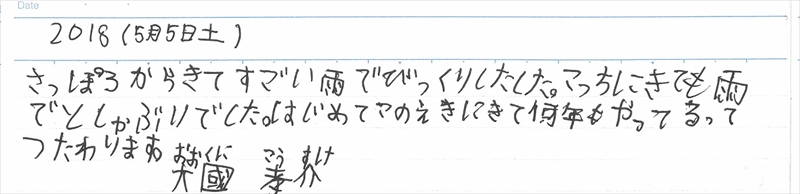 Date
2018(5月5日土)
さっぽろからきてすごい雨でびっくりしたした。こっちにきても雨
でどしゃぶりでした。はじめてこのえきにきて何年もやってるって
つたわります。
おおくに こうすけ
大國 孝介